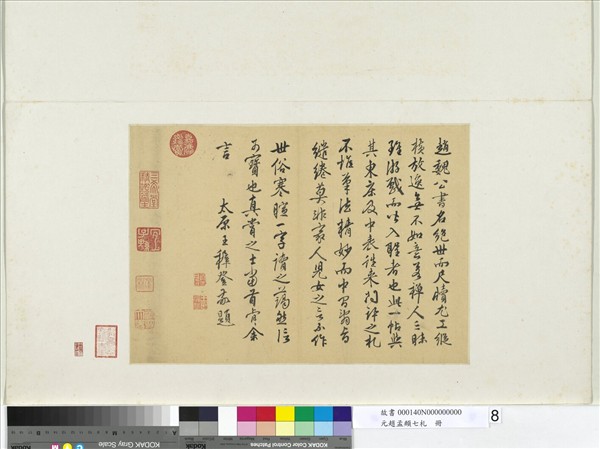 趙魏公書名絕世而尺牘尤工縱
橫放逸無不如意若禪人三昧
雖游戲而皆入聖者也此一帖與
其東床及中表往來問訊之札
不惟筆法精妙而中間
繾綣莫非家人兒女之言不作
世俗寒暄一字讀之藹然信
可寶也真賞之士當首肯余
言
太原王穉登敬題
故書 000140N000000000
元趙孟頫七札 冊
8
KODAK Gray Scale
KODAK Color Control Patches